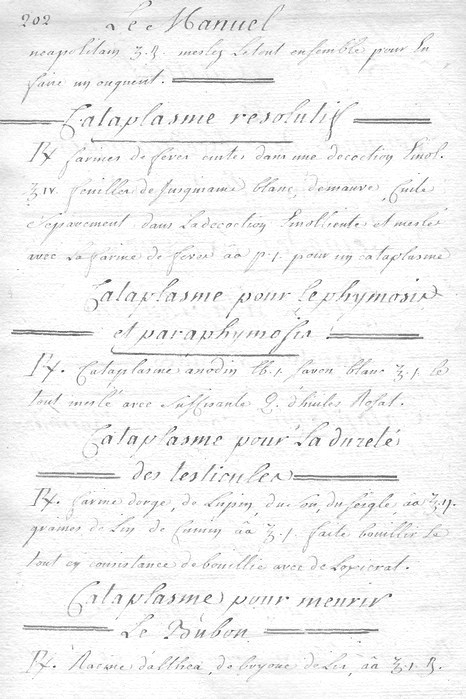 202 Le Manuel
neapolitain ʒ.ß. meslez le tout ensemble pour En
faire un onguent.
Cataplasme resolutif
℞ farines de feves cuites dans une decoction Emol.
℥ıv. feuilles de Jusquiame blanc, demauve, Cuite
Separement dans La decoction Emolliente et meslé
avec La farine de feves ãa p.1. pour un cataplasme
Cataplasme pour le phymosis
et paraphymosis
℞. Cataplasme anodin lb.1. savon blanc ℥.1. le
tout meslé avec suffisante Q. d'huiles Rosat.
Cataplasme pour La dureté
des testicules
℞. farine dorge, de Lupin, du son, du seigle ãa ℥.ıı.
graines de Lin de Cumin ãa ℥.1. faite bouillir le
tout en consistance de bouillie avec de Loxicrat.
Cataplasme pour meurir
Le Bubon
℞. Racine d'althea, de bryone de Lis, ãa ℥.1.ß.